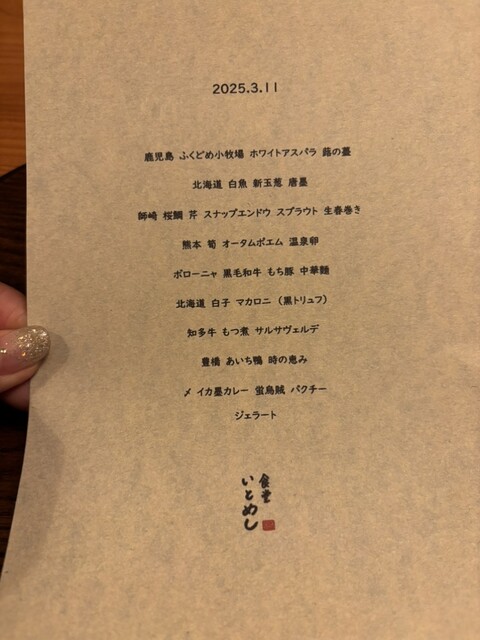 2025.3.11
鹿児島 ふくどめ小牧場 ホワイトアスパラ 蕗の薹
北海道 白魚 新玉葱 唐墨
師崎 桜鯛 芹 スナップエンドウ スプラウト 生春巻き
熊本 筍 オータムポエム 温泉卵
ボローニャ 黒毛和牛 もち豚 中華麺
北海道 白子 マカロニ (黒トリュフ)
知多牛 もつ煮 サルサヴェルデ
豊橋 あいち鴨 時の恵み
〆 イカ墨カレー 蛍烏賊 パクチー
ジェラート
食堂
いとめし